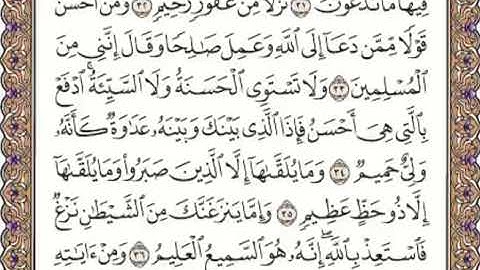 فِيهَا مَا تَدَّعُونَ ۝٣١ نُزُلًا مِّنْ غَفُورٍ رَّحِيمٍ ۝٣٢ وَمَنْ أَحْسَنُ
قَوْلًا مِّمَّن دَعَآ إِلَى ٱللَّهِ وَعَمِلَ صَٰلِحًا وَقَالَ إِنَّنِى مِنَ
ٱلْمُسْلِمِينَ ۝٣٣ وَلَا تَسْتَوِى ٱلْحَسَنَةُ وَلَا ٱلسَّيِّئَةُ ۚ ٱدْفَعْ
بِٱلَّتِى هِىَ أَحْسَنُ فَإِذَا ٱلَّذِى بَيْنَكَ وَبَيْنَهُۥ عَدَٰوَةٌ كَأَنَّهُۥ
وَلِىٌّ حَمِيمٌ ۝٣٤ وَمَا يُلَقَّىٰهَآ إِلَّا ٱلَّذِينَ صَبَرُوا۟ وَمَا يُلَقَّىٰهَآ
إِلَّا ذُو حَظٍّ عَظِيمٍ ۝٣٥ وَإِمَّا يَنزَغَنَّكَ مِنَ ٱلشَّيْطَٰنِ نَزْغٌ
فَٱسْتَعِذْ بِٱللَّهِ ۖ إِنَّهُۥ هُوَ ٱلسَّمِيعُ ٱلْعَلِيمُ ۝٣٦ وَمِنْ ءَايَٰتِهِ